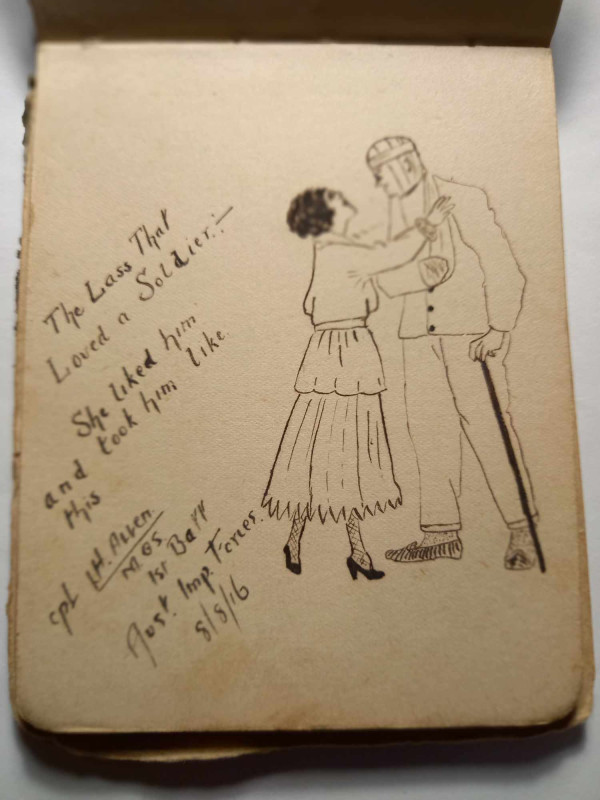 The Lass That
Loved a Soldier:-
She liked him
and took him like
this
Cpl H. Allen
MGS
1st Batt
Aust. Imp. Forces.
8/8/16